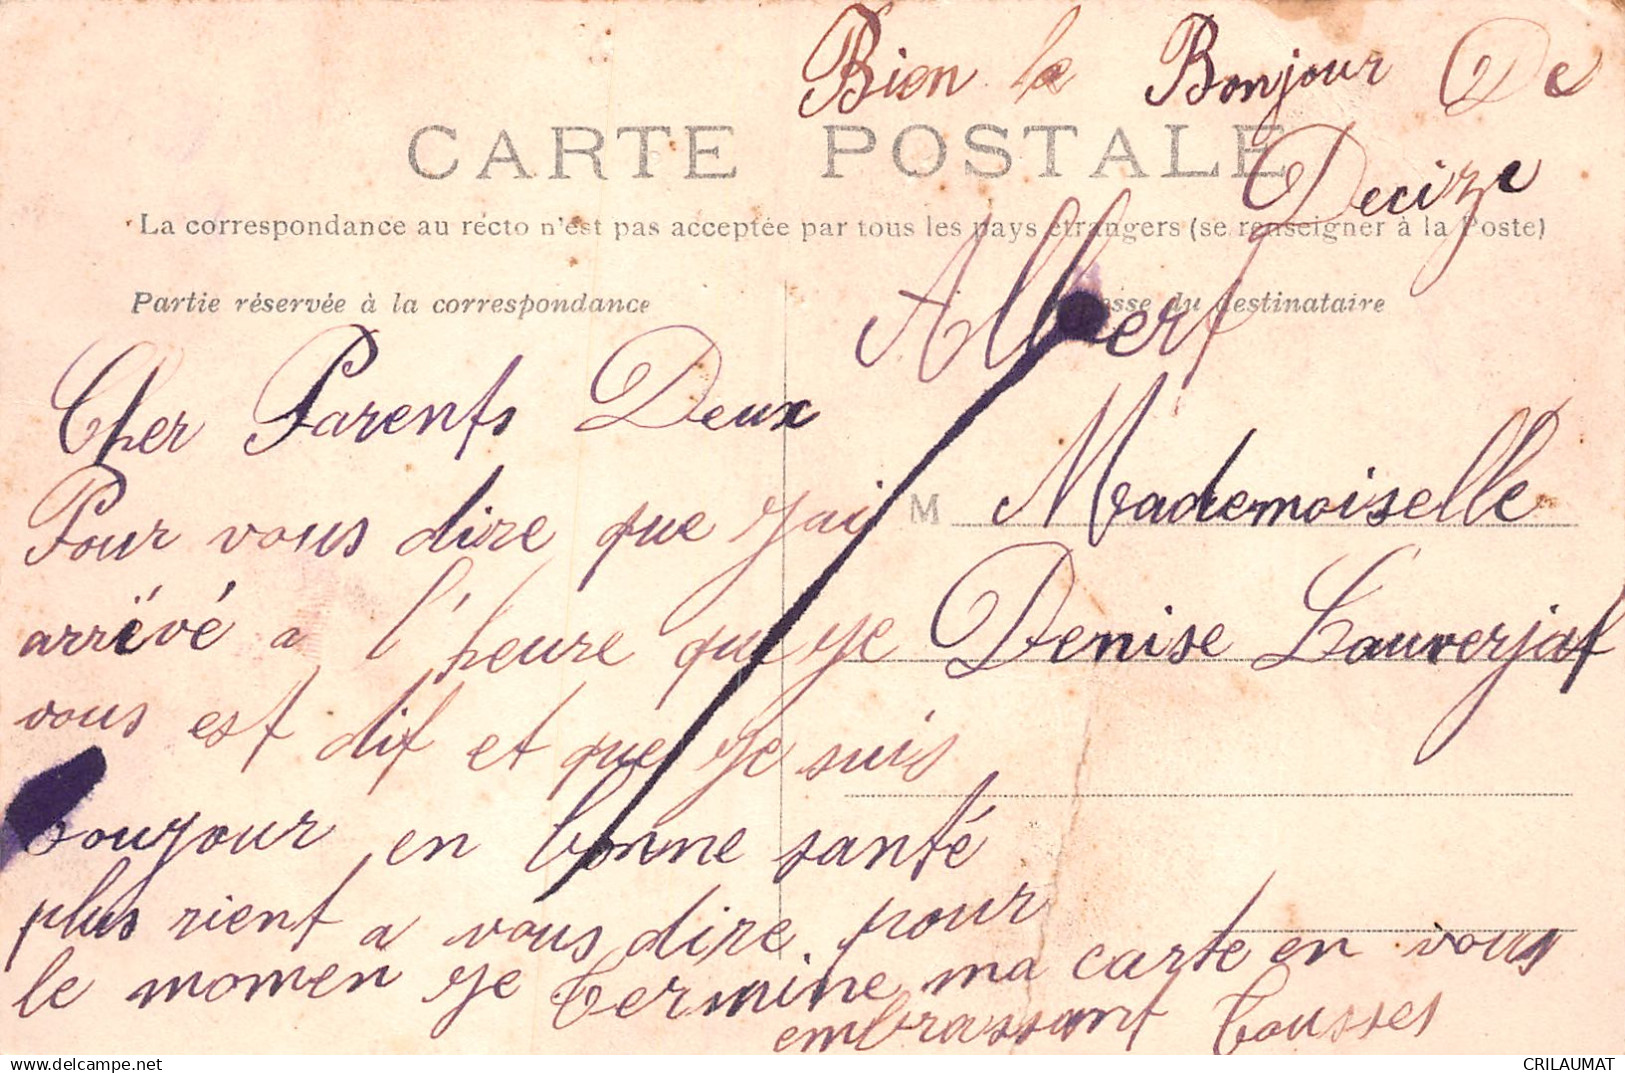 Bien le Bonjour De
CARTE POSTALE
Decize
La correspondance au recto n'est pas acceptée par tous les pays étrangers (se renseigner à la Poste)
Albert
Partie réservée à la correspondance
du destinataire
Cher Parents Deux
Pour vous dire que yai
arrivé a l'heure que ye
vous est dit et que ye suis
touyour en bonne santé
plus rient a vous dire pour
le momen ye termine ma carte en vous
embrassant tousses
M Mademoiselle
Denise Lauverjat
CRILAUMAT